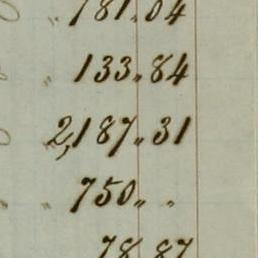 " 781.04
" 133.84
2,187.31
" 750 " "
78 87